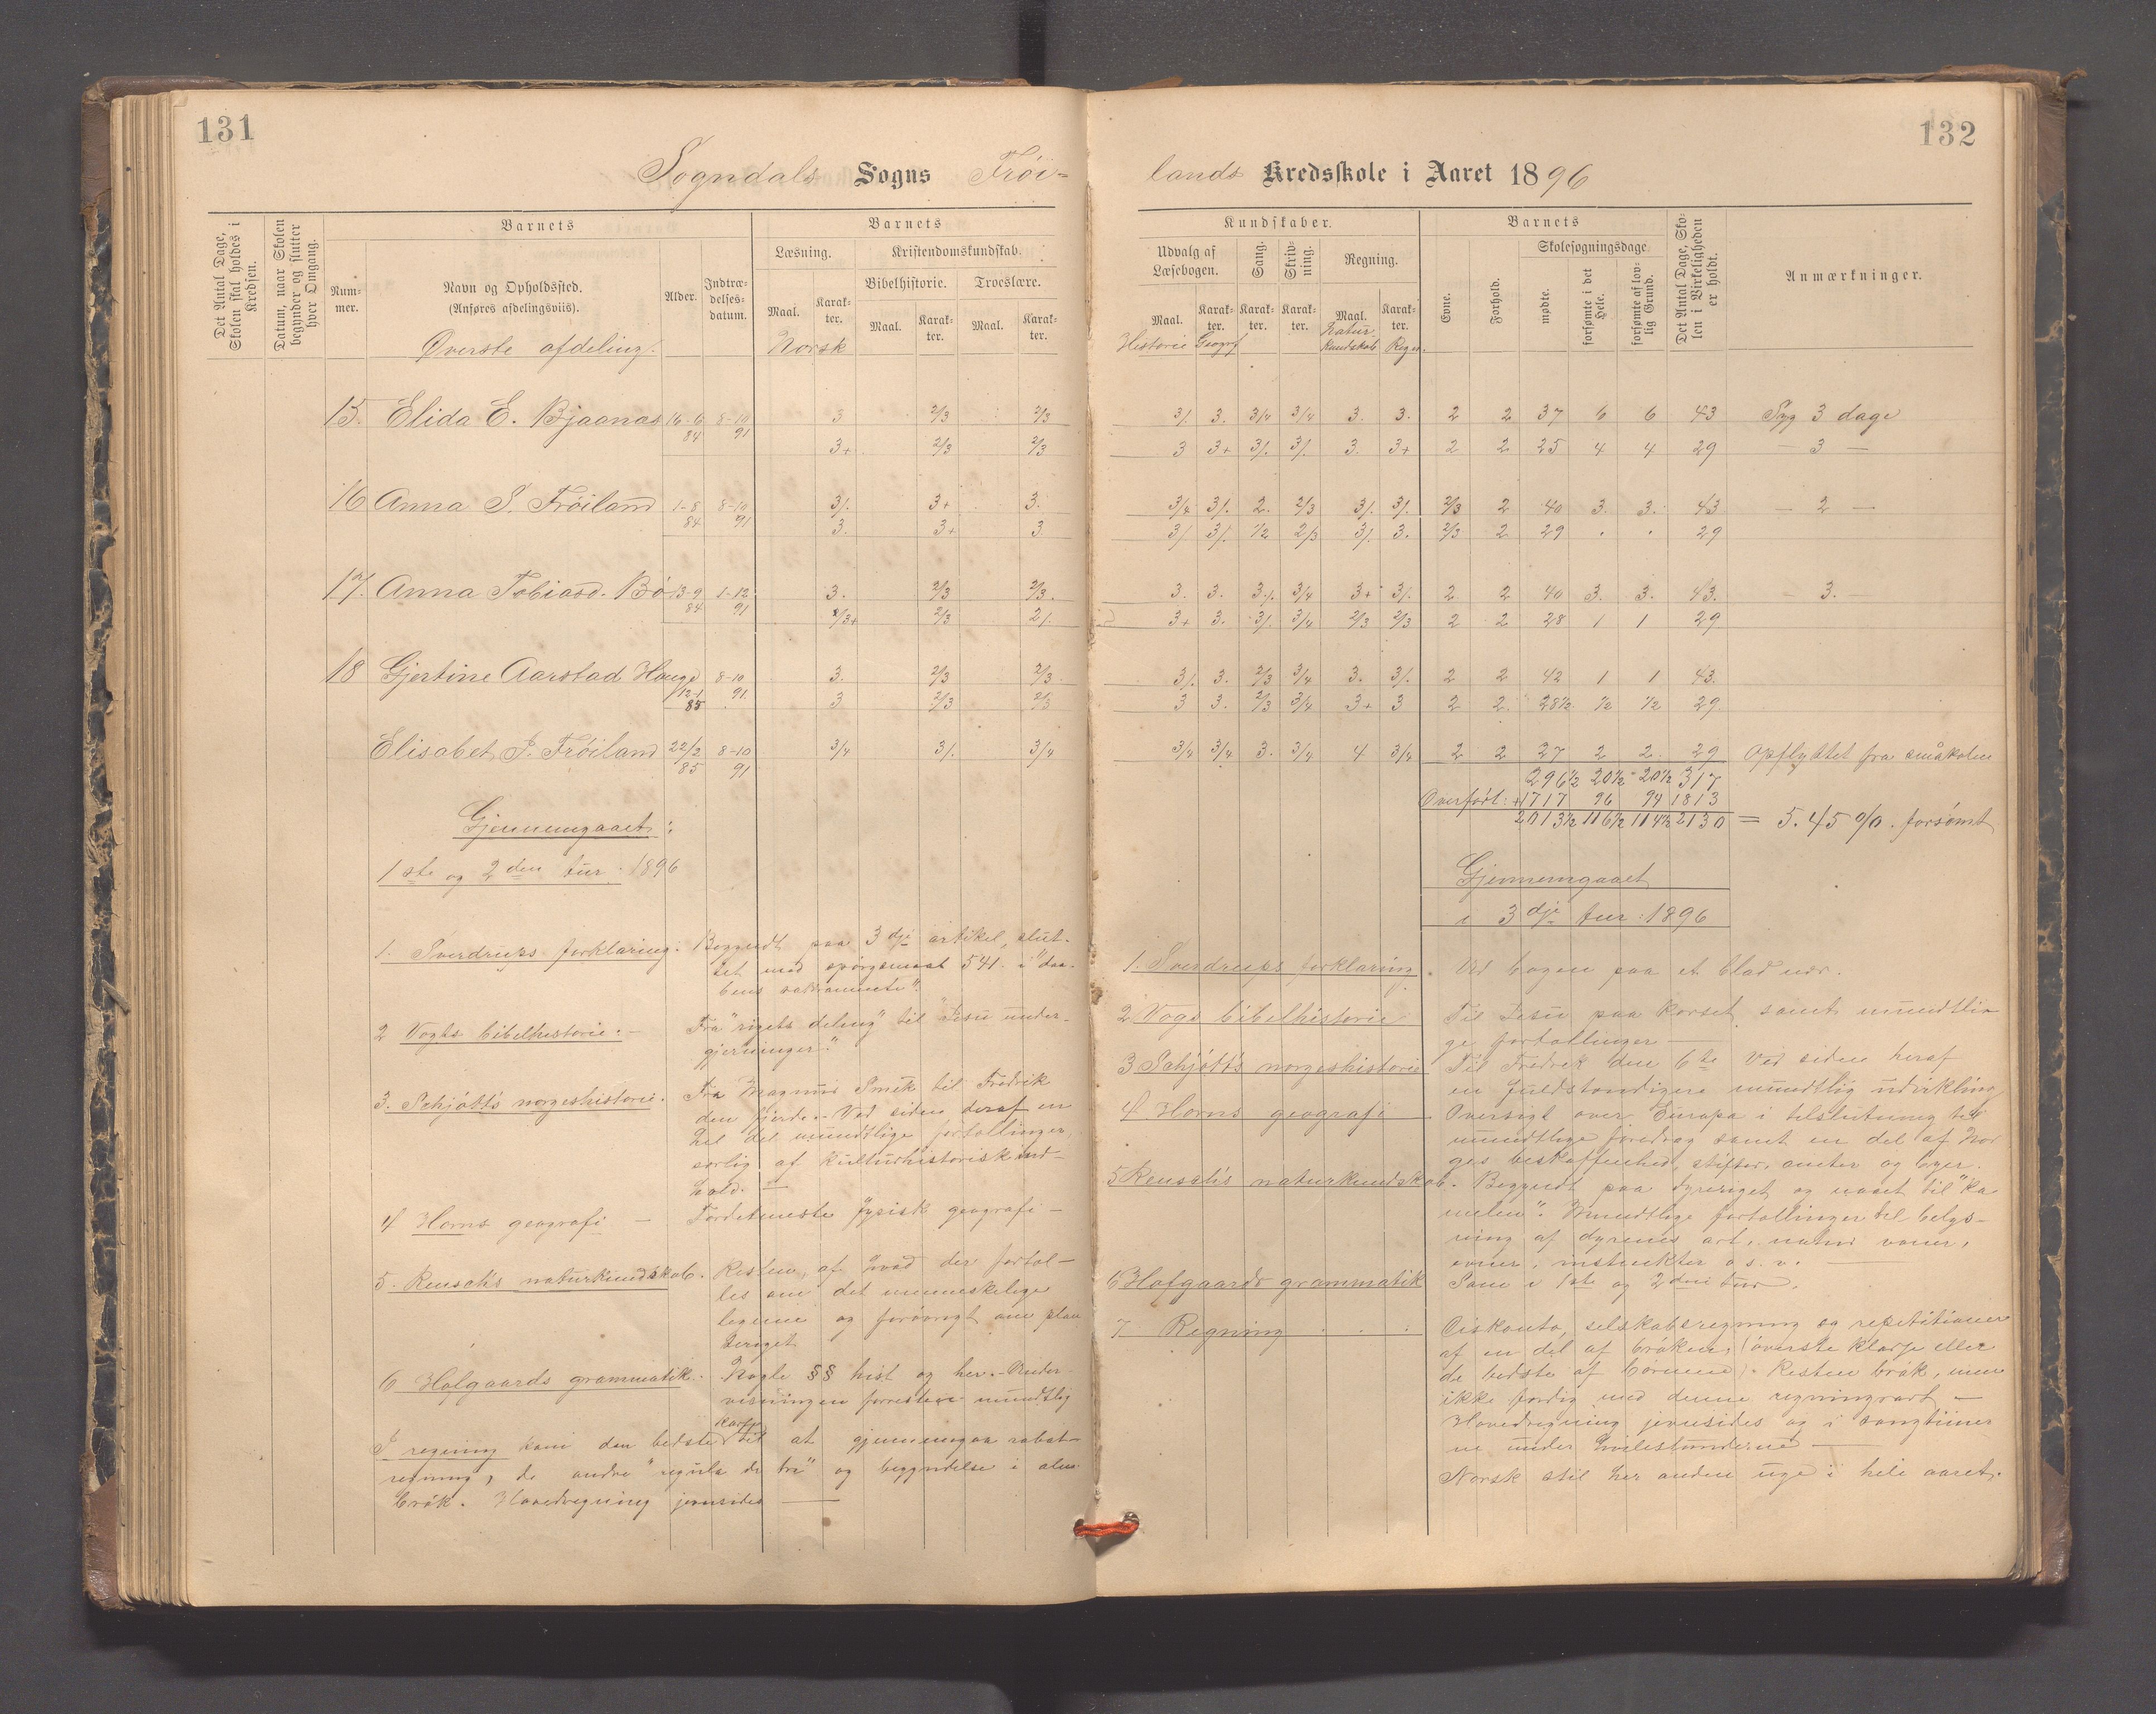 131
Sogndals Sogns Frøi-
Det Antal Dage, Skolen skal holdes i Kredsen.
Datum, naar Skolen begynder og slutter hver Omgang.
Barnets
Num-
mer.
Navn og Opholdssted.
(Anføres afdelingsviis).
Alder.
Indtræ-
delses-
datum.
Barnets
Læsning.
Kristendomskundskab.
Bibelhistorie.
Troeslære.
Maal.
Karak-
ter.
Maal.
Karak-
ter.
Maal.
Karak-
ter.
Øverste afdeling.
Norsk
15. Elida E. Bjaanæs 16-6 84 8-10 91 3 2/3 2/3
3+ 2/3 2/3
16 Anna S. Frøiland 1-8 84 8-10 91 3/. 3+ 3.
3. 3+ 3
17. Anna Tobiasd. Bø 13-9 84 1-12 91 3. 2/3 2/3.
2/3+ 2/3 2/.
18 Gjertine Aarstad Hauge 12-1 85 8-10 91. 3. 2/3 2/3
3 2/3 2/3
Elisabet J. Frøiland 22/2 85 8-10 91 3/4 3/. 3/4
Gjennemgaaet:
1ste og 2den tur. 1896
1. Sverdrups forklaring: Begyndt paa 3dje artikel, slut-
tet med spørgsmaal 541. i "daa-
bens sakramente".
2 Vogts bibelhistorie. – Fra "rigets deling" til "Jesu under-
gjerninger."
3. Schjøtt's norgeshistorie. Fra Magnus Smek til Fredrik
den fjerde. – Ved siden deraf en
hel del mundtlige fortællinger,
særlig af kulturhistorisk ind-
hold. —
4 Horns geografi – Fordetmeste fysisk geografi –
5. Knudsen's naturkundskab. Resten af "hvad der fortæl-
les om det menneskelige
legeme og forøvrigt om plan
teriget
6 Hofgaards grammatik. Nogle §§ hist og her. – Under-
visningen forresten mundtlig
I regning kom den bedste klasse til at gjennemgaa rabat-
regning, de andre "regula de tri" og begyndelse i alm.
brøk. Hovedregning jevnsides —
132
lands Kredsskole i Aaret 1896
Kundskaber.
Udvalg af
Læsebogen.
Sang.
Skriv-
ning.
Regning.
Maal.
Karak-
ter.
Karak-
ter.
Karak-
ter.
Maal.
Karak-
ter.
Historie
Geogrf
Natur
kundskab
Regn.
Barnets
Evne.
Forhold.
Skolesøgningsdage.
mødte.
forsømte i det Hele.
forsømte af lov-
lig Grund.
Det Antal Dage, Sko-
len i Virkeligheden
er holdt.
Anmærkninger.
3/. 3. 3/4 3/4 3. 3. 2 2 37 6 6 43 Syg 3 dage
3 3+ 3/. 3/. 3. 3+ 2 2 25 4 4 29 — 3 —
3/4 3/. 2. 2/3 3/. 3/. 2/3 2 40 3. 3. 43 — 2 —
3/ 3/. 1/2 2/3 3/. 3. 2/3 2 29 . . 29
3. 3. 3./. 3/4 3+ 3/. 2 2 40 3. 3. 43. — 3. —
3+ 3. 3/. 3/4 2/3 2/3 2 2 28 1 1 29
3/. 3. 2/3 3/4 3. 3/. 2 2 42 1 1 43.
3 3. 2/3 3/4 3+ 3 2 2. 28½ ½ ½ 29.
3/4 3/4 3. 3/4 4 3/4 2 2 27 2 2 29 Opflyttet fra småskolen
296½ 20½ 20½ 317
Overført: +1717 96 94 1813
2013½ 116½ 114½ 2130 = 5.45 %. forsømt
Gjennemgaaet
i 3dje tur: 1896
1. Sverdrups forklaring. Ved bogen paa et blad nær.
2 Vogs bibelhistorie Til Jesu paa korset samt mundtli-
ge fortællinger —
3 Schjøtt's norgeshistorie Til Fredrik den 6te Ved siden heraf
en fuldstændigere mundtlig udvikling
4 Horns geografi. Oversigt over Europa i tilslutning til
mundtlige foredrag samt en del af Nor
ges beskaffenhed, stifter, amter og byer.
5 Knudsen's naturkundskab. Begyndt paa dyreriget og naaet til "Ka
melen". Mundtlige fortællinger til belys-
ning af dyrenes art, natur vaner,
evner, instinkter o. s. v. —
6 Hofgaards grammatik Som i 1ste og 2den tur.
7 Regning . . . Diskonto, selskabsregning og repetitioner
af en del af brøken, (øverste klasse eller
de bedste af børnene). Resten brøk, men
ikke færdig med denne regningsart –
Hovedregning jevnsides og i sangtimer
ne under hvilestunderne —
Norsk stil hver anden uge i hele aaret.